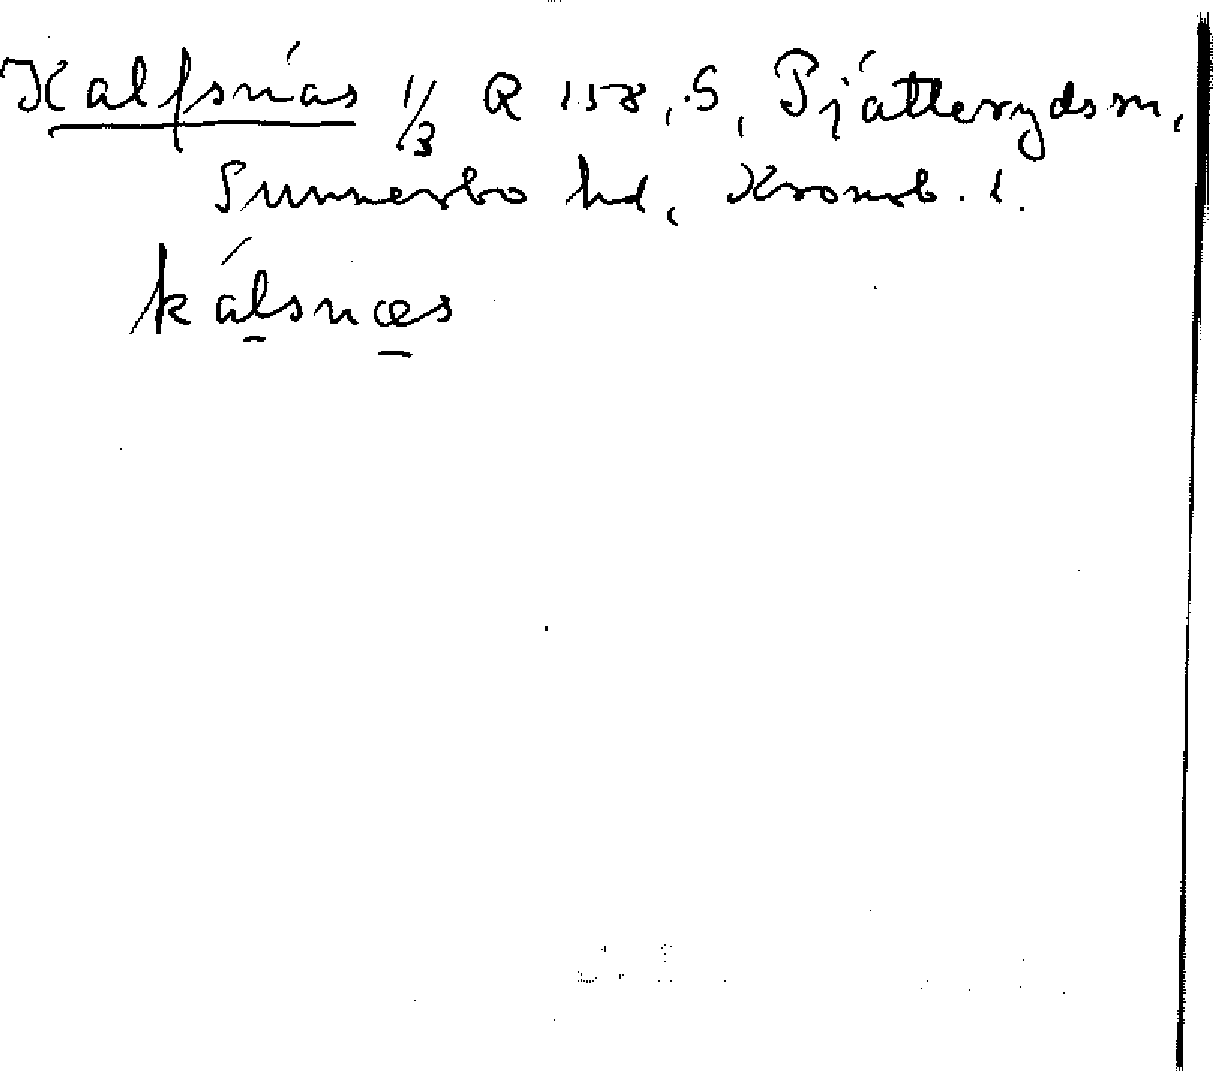 Kalfsnäs 1/3 R 158, S, Pjätteryds sn,
Sunnerbo hd, Kronob. l.
kálsnæs